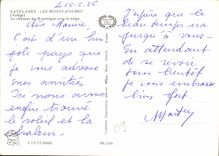 LAVELANET - LES MONTS D'OLMES
(Ariège)
Le château de Montségur sous la neige
15-5-85
Chère Mamie
C'est d'un bien
joli pays que
je vous adresse
mes amitiés
Ici nous avons
enfin trouvé
le soleil et la
chaleur.
J'espère que le
beau temps ira
jusqu'à vous.
En attendant
de se revoir
bientôt
je vous embrasse
bien fort.